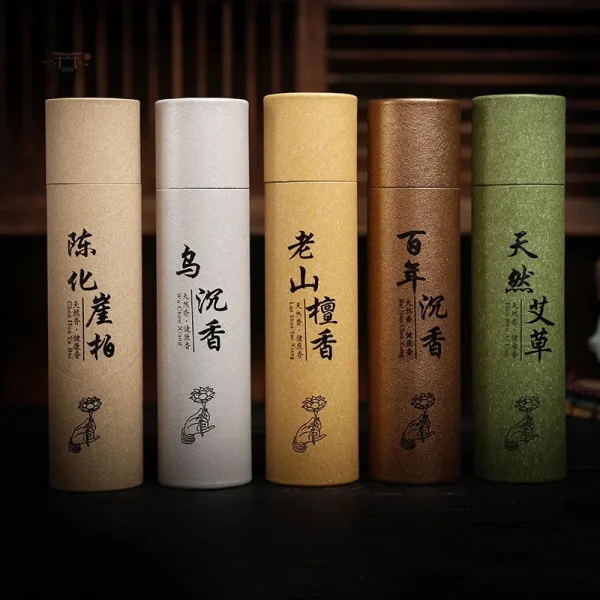 陈化
崖柏
天然香·健康香
Chen Hua Ya Bai
乌
沉香
天然香·健康香
Wu Chen Xiang
老山
檀香
天然香·健康香
Lao Shan Tan Xiang
百年
沉香
天然香·健康香
天然
艾草
天然香·健康香